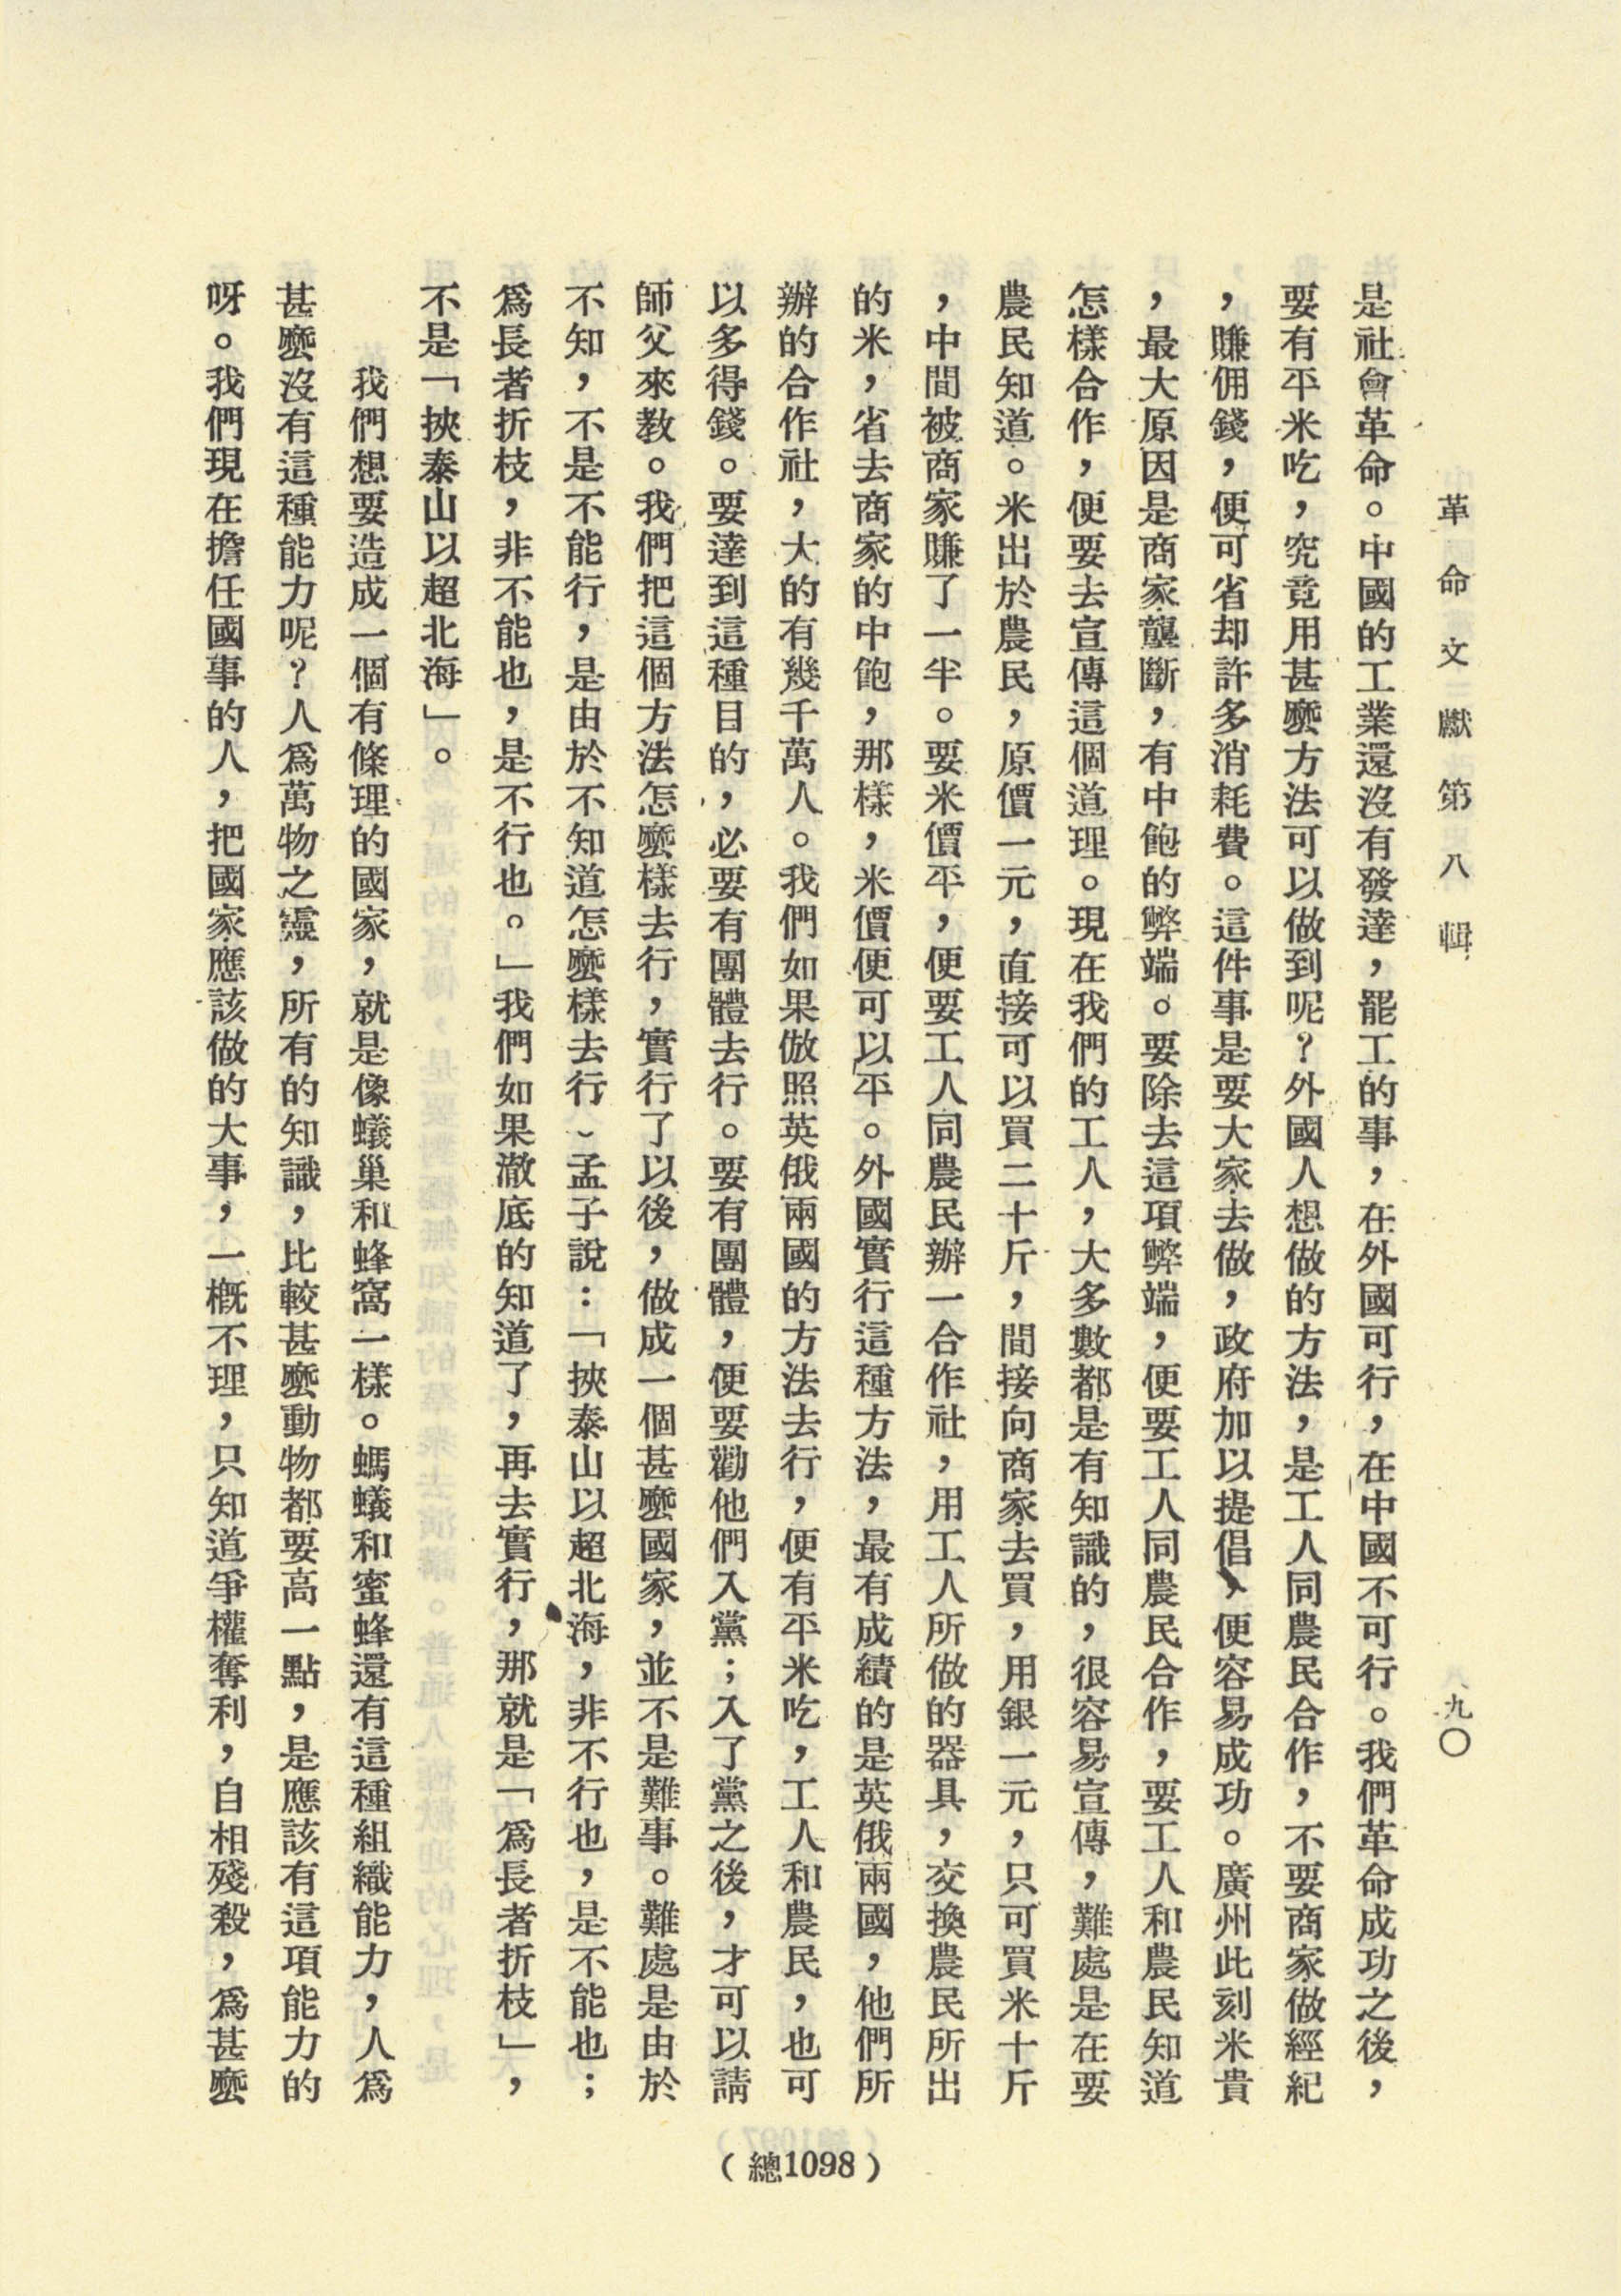 革命文獻第八輯
九〇
是社會革命。中國的工業還沒有發達，罷工的事，在外國可行，在中國不可行。我們革命成功之後，
要有平米吃，究竟用甚麼方法可以做到呢？外國人想做的方法，是工人同農民合作，不要商家做經紀
，賺佣錢，便可省却許多消耗費。這件事是要大家去做，政府加以提倡，便容易成功。廣州此刻米貴
，最大原因是商家壟斷，有中飽的弊端。要除去這項弊端，便要工人同農民合作，要工人和農民知道
怎樣合作，便要去宣傳這個道理。現在我們的工人，大多數都是有知識的，很容易宣傳，難處是在要
農民知道。米出於農民，原價一元，直接可以買二十斤，間接向商家去買，用銀一元，只可買米十斤
，中間被商家賺了一半。要米價平，便要工人同農民辦一合作社，用工人所做的器具，交換農民所出
的米，省去商家的中飽，那樣，米價便可以平。外國實行這種方法，最有成績的是英俄兩國，他們所
辦的合作社，大的有幾千萬人。我們如果倣照英俄兩國的方法去行，便有平米吃，工人和農民，也可
以多得錢。要達到這種目的，必要有團體去行。要有團體，便要勸他們入黨；入了黨之後，才可以請
師父來教。我們把這個方法怎麼樣去行，實行了以後，做成一個甚麼國家，並不是難事。難處是由於
不知，不是不能行，是由於不知道怎麼樣去行。孟子說：「挾泰山以超北海，非不行也，是不能也；
爲長者折枝，非不能也，是不行也。」我們如果澈底的知道了，再去實行，那就是「爲長者折枝」，
不是「挾泰山以超北海」。
我們想要造成一個有條理的國家，就是像蟻巢和蜂窩一樣。螞蟻和蜜蜂還有這種組織能力，人爲
甚麼沒有這種能力呢？人爲萬物之靈，所有的知識，比較甚麼動物都要高一點，是應該有這項能力的
呀。我們現在擔任國事的人，把國家應該做的大事，一概不理，只知道爭權奪利，自相殘殺，爲甚麼
（總1098）